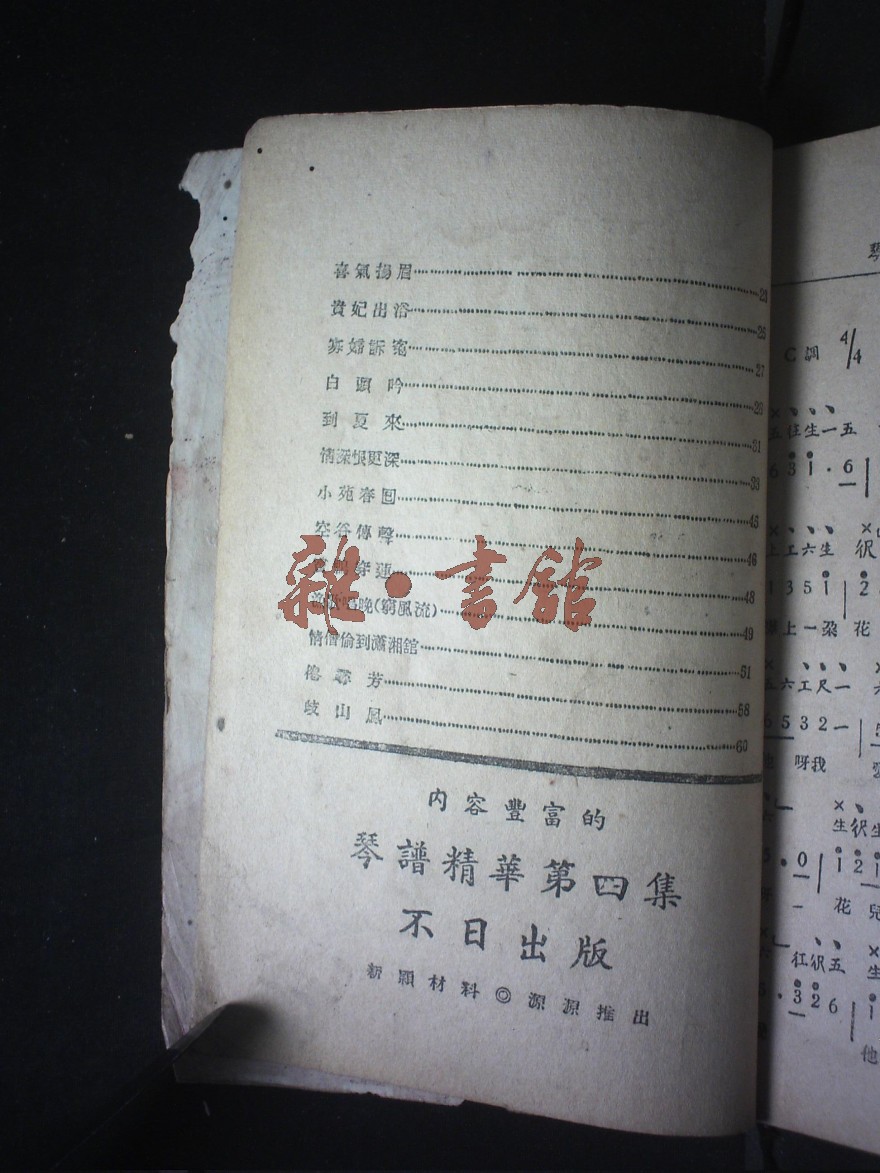 喜氣揚眉 23
貴妃出浴 25
寡婦訴寃 27
白頭吟 29
到夏來 31
情深恨更深 33
小苑春回 45
空谷傳聲 46
穿蓮 48
唱晚(窮風流) 49
情僧偷到瀟湘舘 51
尋芳 58
岐山鳳 60
内容豐富的
琴譜精華第四集
不日出版
新穎材料◎源源推出
雜·書館
C調 4/4
五彺生一五
6 3 1 · 6
上工六生 伬
1 3 5 1 2
上一朶 花
六工尺一
6 5 3 2 一
呀我
生伬生
0 1 2 1
一 花 兒
彺伬五 生
· 3 2 6 1
他